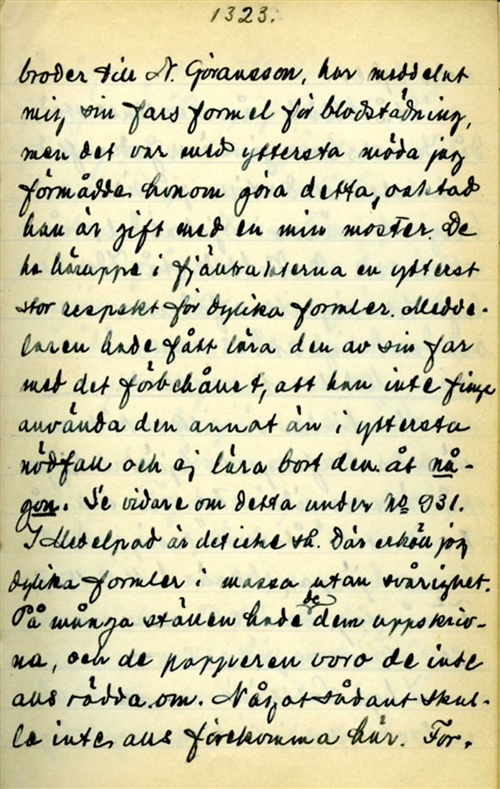 1323.
broder till N. Göransson, har meddelat
mig sin fars formel för blodstädning,
men det var med yttersta möda jag
förmådde honom göra detta, oaktad
han är gift med en min moster. De
ha häruppe i fjäntrakterna en ytterst
stor respekt för dylika formler. Medde-
laren hade fått lära den av sin far
med det förbehånet, att han inte finge
använda den annat än i yttersta
nödfall och ej lära bort den åt nå-
gon. Se vidare om detta under No 931.
I Medelpad är det icke så. Där erhöll jag
dylika formler i massa utan svårighet.
På många ställen hade de dem uppskriv-
na, och de papperen voro de inte
alls rädda om. Något sådant skul-
le inte alls förekomma här. For.